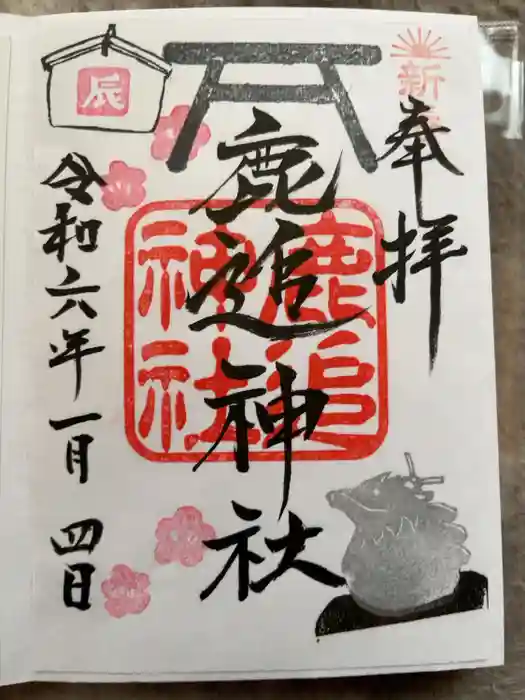 新春
奉拝
鹿追神社
鹿追神社
辰
令和六年一月四日